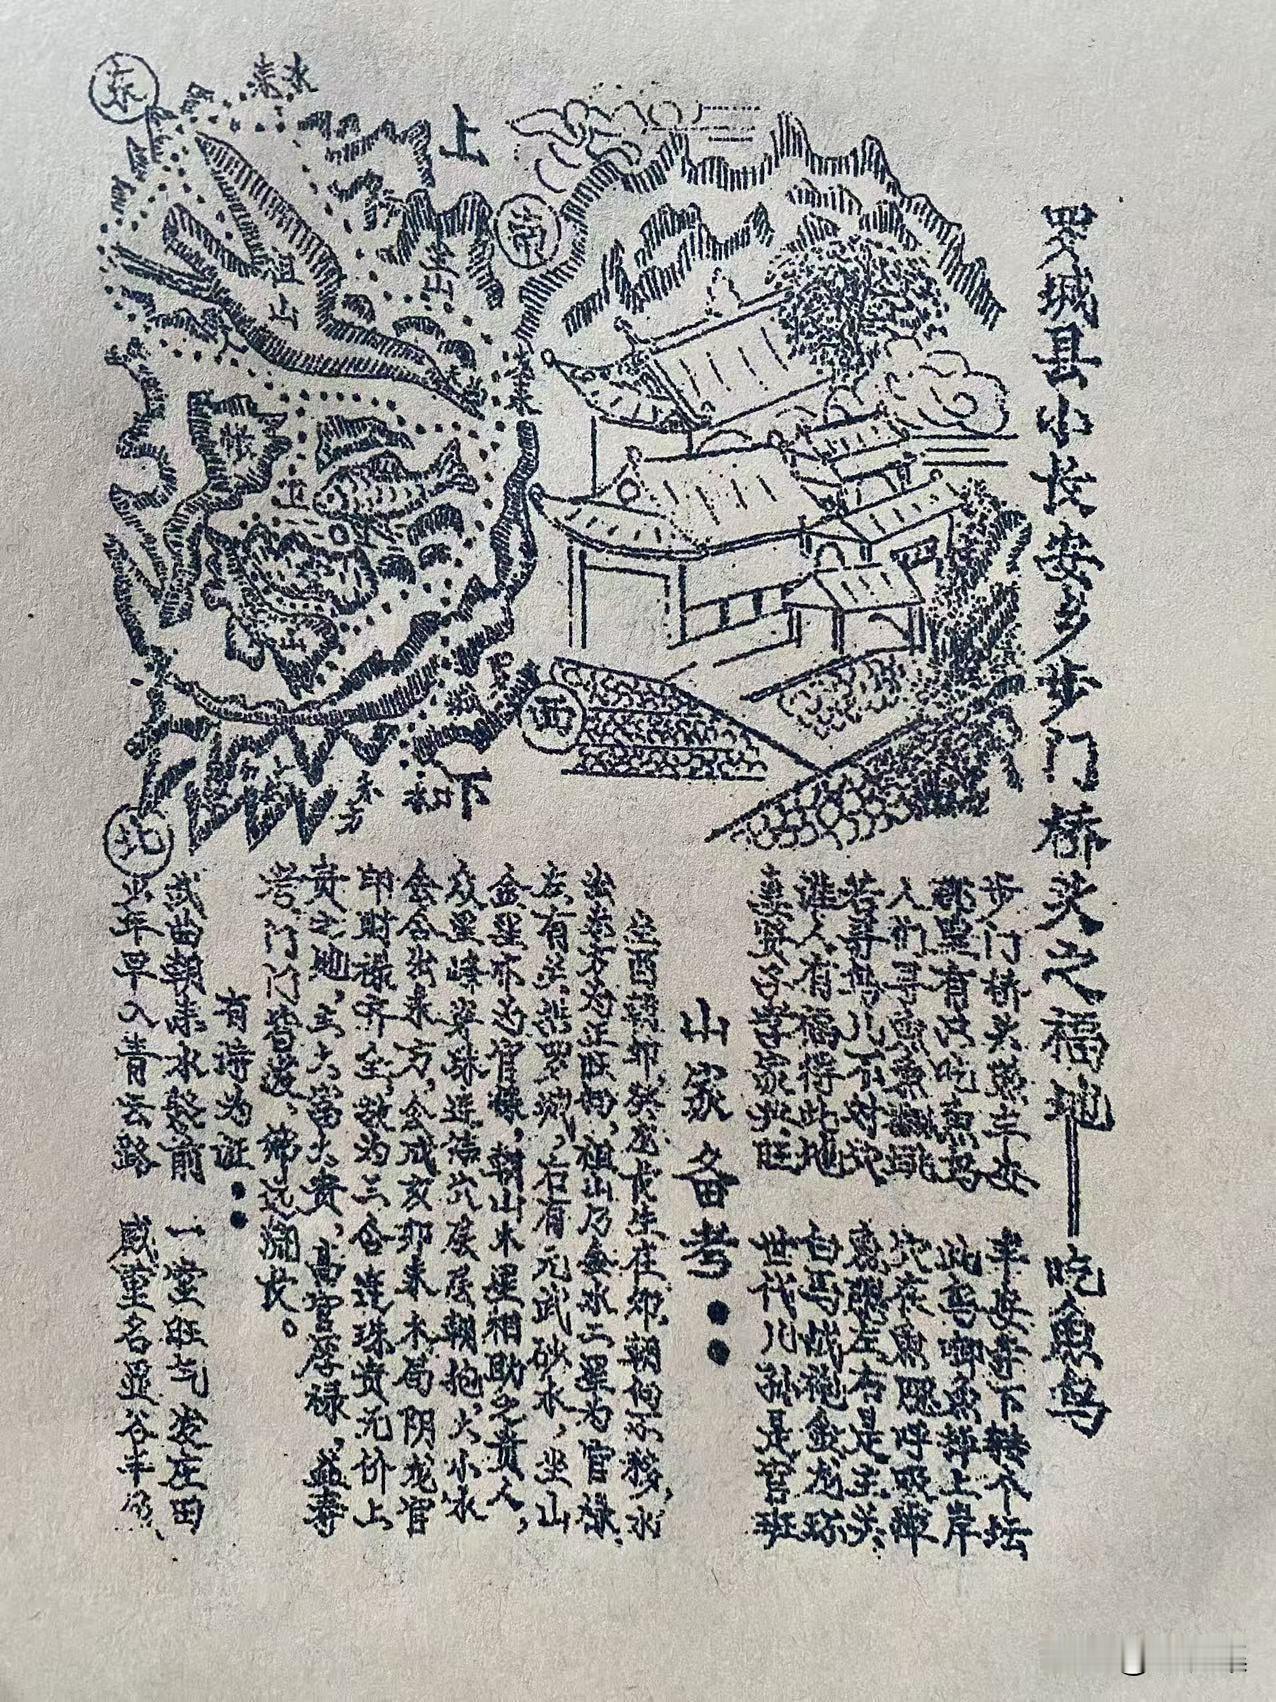 罗城县小长安乡步门桥头之福地——吃鱼鸟
步门桥头燕三安 半安寺下转个坛
那里有只吃鱼鸟 此鸟啣鱼摔上岸
人们寻鱼鱼翻跳 穴在鱼腮呼吸
若寻鸟儿不对坎 鱼眼左右是主关
谁人有福得此地 白马战袍金龙环
圣贤名学家兴旺 世代儿孙是官班
山家备考:
坐酉朝卯癸龙长生在卯,朝向不移,水
出东方为正旺向,祖山乃金水二星为官禄,
左有罗城,右有元武砂水,坐山
金星亦为官禄,朝山木星相助之贵人,
众星峰穿珠连结穴层层朝抱,大小水
会合出东方,会成亥卯未木局阴龙官
印财禄齐全,故为三合连珠贵无价上
贵之地,主大富大贵,高官厚禄,益寿
门门皆发,绵远流长。
有诗为证:
武曲朝来水聚前 一堂旺气发庄田
少年早入青云路 威望名盈谷丰
东
南
西
北
上
下
来水
祖山